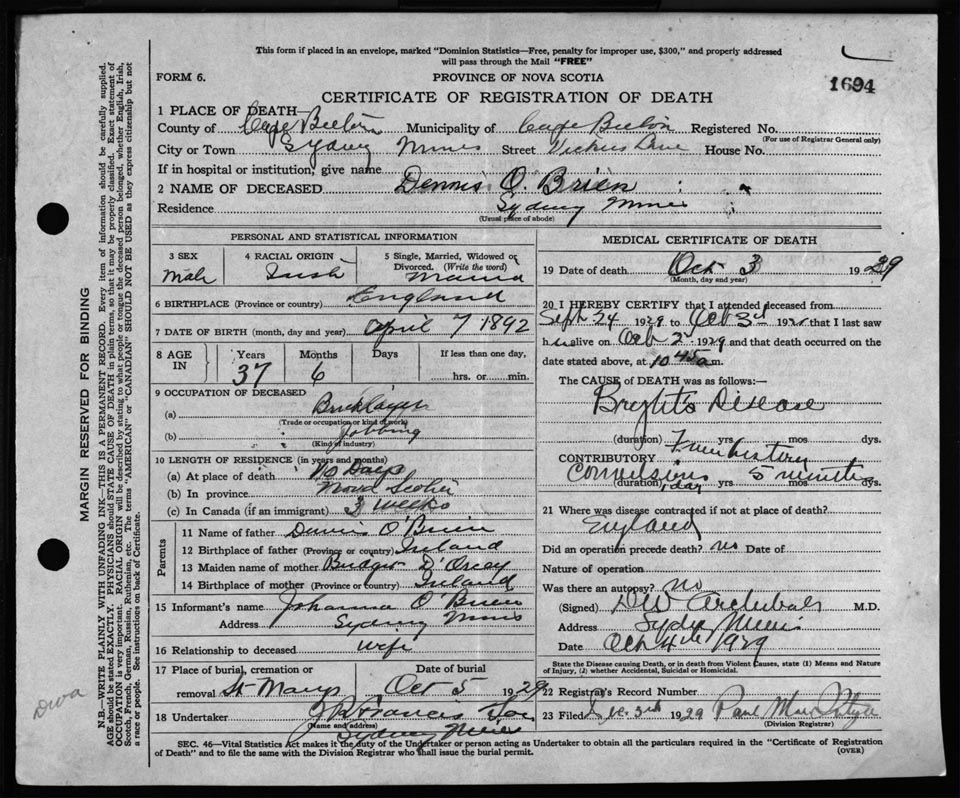 This form if placed in an envelope, marked "Dominion Statistics—Free, penalty for improper use, $300," and properly addressed
will pass through the Mail "FREE"
FORM 6.
PROVINCE OF NOVA SCOTIA
1694
CERTIFICATE OF REGISTRATION OF DEATH
1 PLACE OF DEATH—
County of Cape Breton Municipality of Cape Breton Registered No.
(For use of Registrar General only)
City or Town Sydney Mines Street Vickers Lane House No.
If in hospital or institution, give name
2 NAME OF DECEASED Dennis O'Brien
Residence Sydney Mines
(Usual place of abode)
PERSONAL AND STATISTICAL INFORMATION
3 SEX
Male
4 RACIAL ORIGIN
Irish
5 Single, Married, Widowed or
Divorced. (Write the word)
Married
6 BIRTHPLACE (Province or country) England
7 DATE OF BIRTH (month, day and year) April 7 1892
8 AGE IN
Years Months Days If less than one day,
37 6 hrs. or min.
9 OCCUPATION OF DECEASED
(a) Bricklayer
(Trade or occupation or kind of work)
(b) Jobbing
(Kind of industry)
10 LENGTH OF RESIDENCE (in years and months)
(a) At place of death 10 Days
(b) In province Nova Scotia
(c) In Canada (if an immigrant) 3 weeks
Parents
11 Name of father Dennis O'Brien
12 Birthplace of father (Province or country) Ireland
13 Maiden name of mother Bridget D'Orcey
14 Birthplace of mother (Province or Country) Ireland
15 Informant's name Johanna O'Brien
Address Sydney Mines
16 Relationship to deceased wife
17 Place of burial, cremation or
removal St Marys
Date of burial
Oct 5 1929
18 Undertaker Francis
(Name and address)
Sydney Mines
MEDICAL CERTIFICATE OF DEATH
19 Date of death Oct 3 1929
(Month, day and year)
20 I HEREBY CERTIFY that I attended deceased from
Sept 24 1929 to Oct 3rd 192 that I last saw
h alive on Oct 2 1929 and that death occurred on
date stated above, at 10 45 a m.
The CAUSE of DEATH was as follows:—
Bryhts Disease
(duration) yrs mos dys.
From history
CONTRIBUTORY
Convulsions 5 minutes
(duration) day mos dys.
21 Where was disease contracted if not at place of death?
England
Did an operation precede death? no Date of
Nature of operation
Was there an autopsy? no
(Signed) DW Archibald M.D.
Address Sydney Mines
Date Oct 4th 1929
State the Disease causing Death, or in death from Violent Causes, state (1) Means and Nature
of Injury, (2) whether Accidental, Suicidal or Homicidal.
22 Registrar's Record Number
23 Filed 1929
(Division Registrar)
SEC. 46—Vital Statistics Act makes it the duty of the Undertaker or person acting as Undertaker to obtain all the particulars required in the "Certificate of Registration
of Death" and to file the same with the Division Registrar who shall issue the burial permit.
(OVER)
MARGIN RESERVED FOR BINDING
N.B.—WRITE PLAINLY WITH UNFADING INK—THIS IS A PERMANENT RECORD. Every item of information should be carefully supplied.
AGE should be stated EXACTLY. PHYSICIANS should STATE CAUSE OF DEATH in plain terms, so that it may be properly classified. Exact statement of
OCCUPATION is very important. RACIAL ORIGIN will be described by stating to what people or tongue the deceased person belonged, whether English, Irish,
Scotch, French, German, Russian, Ruthenian etc. The terms "AMERICAN" or "CANADIAN" SHOULD NOT BE USED as they express citizenship but not
a race or people. See instructions on back of Certificate.